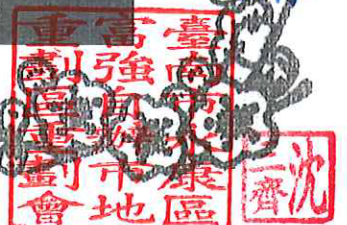 臺南市永康區
富強自辦市地
重劃區重劃會
沈
齊